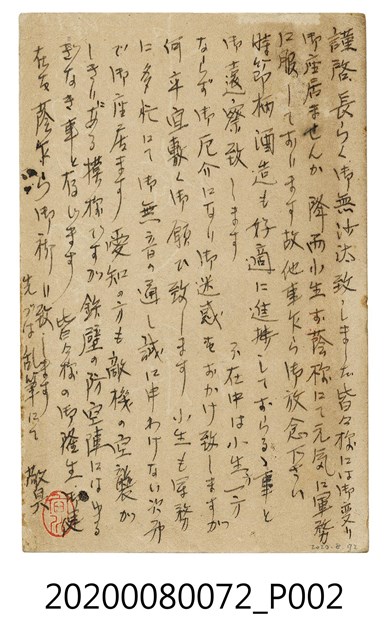 謹啓 長らく御無沙汰致しました 皆々様には御変り
御座居ませんか 降而小生お蔭様にて元気に軍務
に服しております故他事乍ら御放念下さい
時節柄酒造も好適に進捗しておらるゝ事と
御遠察致します 不在中は小生方
ならず御厄介になり御迷惑をおかけ致しますが
何卒宜敷く御願ひ致します 小生も軍務
に多忙にて御無音の通し誠に申わけない次第
で御座居ます 愛知の方も敵機の空襲が
しきりにある模様ですが鉄壁の防空陣にはゆる
ぎなき事と存じます 皆々様の御隆生御健
在を蔭乍ら御祈り致します
先づは乱筆にて 敬具
2020.8.72
20200080072_P002